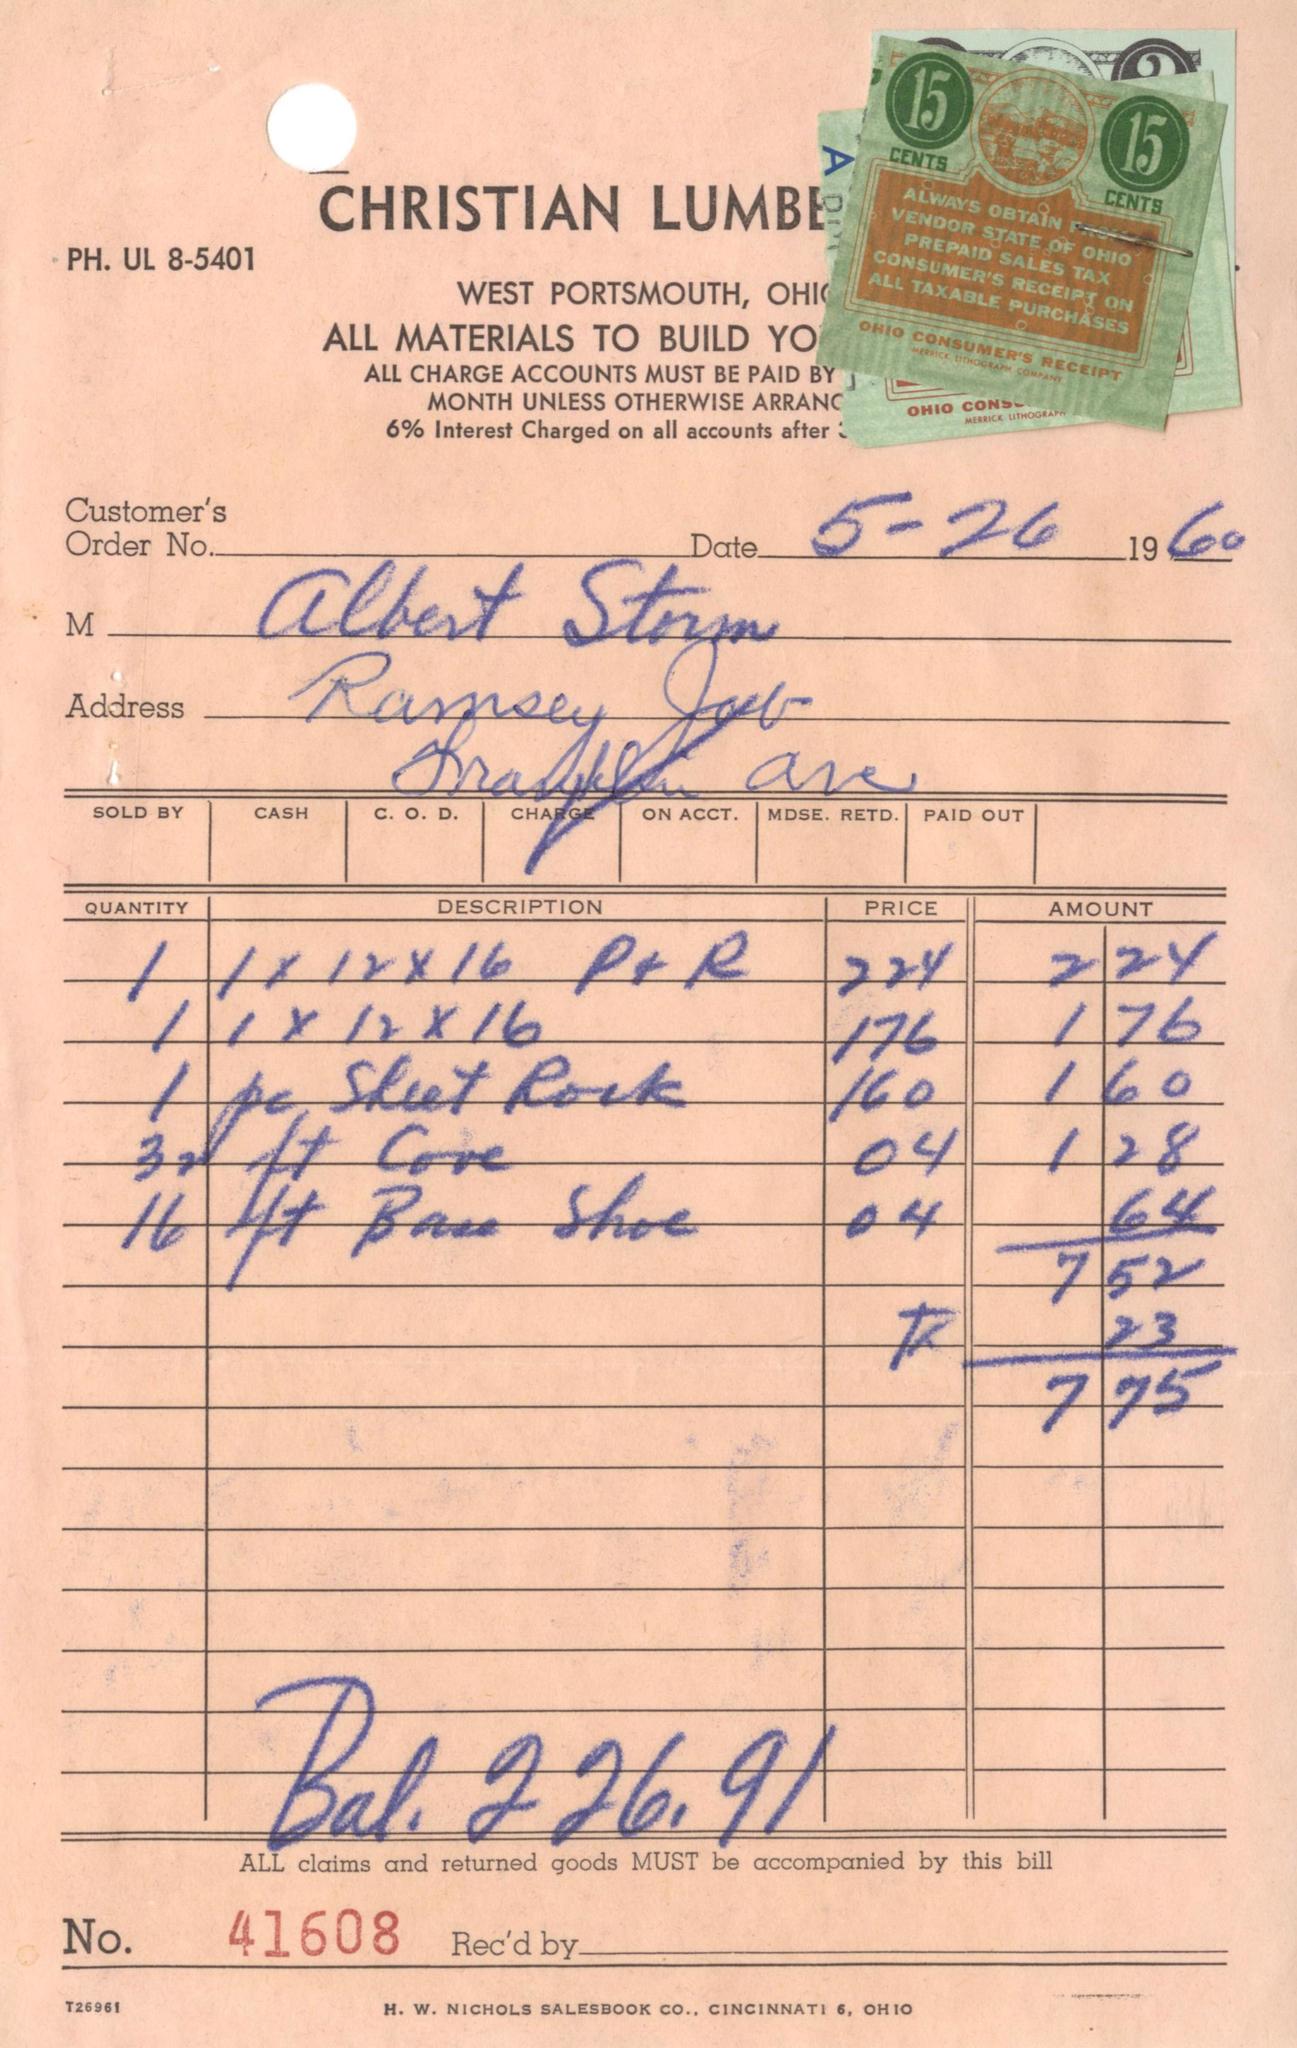 15 CENTS 15 CENTS
ALWAYS OBTAIN FROM
VENDOR STATE OF OHIO
PREPAID SALES TAX
CONSUMER'S RECEIPT ON
ALL TAXABLE PURCHASES
OHIO CONSUMER'S RECEIPT
MERRICK LITHOGRAPH COMPANY
OHIO CONS
MERRICK LITHOGRAPH
2
A
CHRISTIAN LUMBE
PH. UL 8-5401
WEST PORTSMOUTH, OHIO
ALL MATERIALS TO BUILD YO
ALL CHARGE ACCOUNTS MUST BE PAID BY
MONTH UNLESS OTHERWISE ARRANG
6% Interest Charged on all accounts after 3
Customer's
Order No. Date 5-26 1960
M Albert Storm
Address Ramsey Job
Franklin Ave
SOLD BY CASH C. O. D. CHARGE ON ACCT. MDSE. RETD. PAID OUT
QUANTITY DESCRIPTION PRICE AMOUNT
1 1 x 12 x 16 P & R 224 2 24
1 1 x 12 x 16 176 1 76
1 pc Sheet Rock 160 1 60
32 ft Cove 04 1 28
16 ft Base Shoe 04 64
7 52
TX 23
7 75
Bal. 226.91
ALL claims and returned goods MUST be accompanied by this bill
No. 41608 Rec'd by
T26961 H. W. NICHOLS SALESBOOK CO., CINCINNATI 6, OHIO